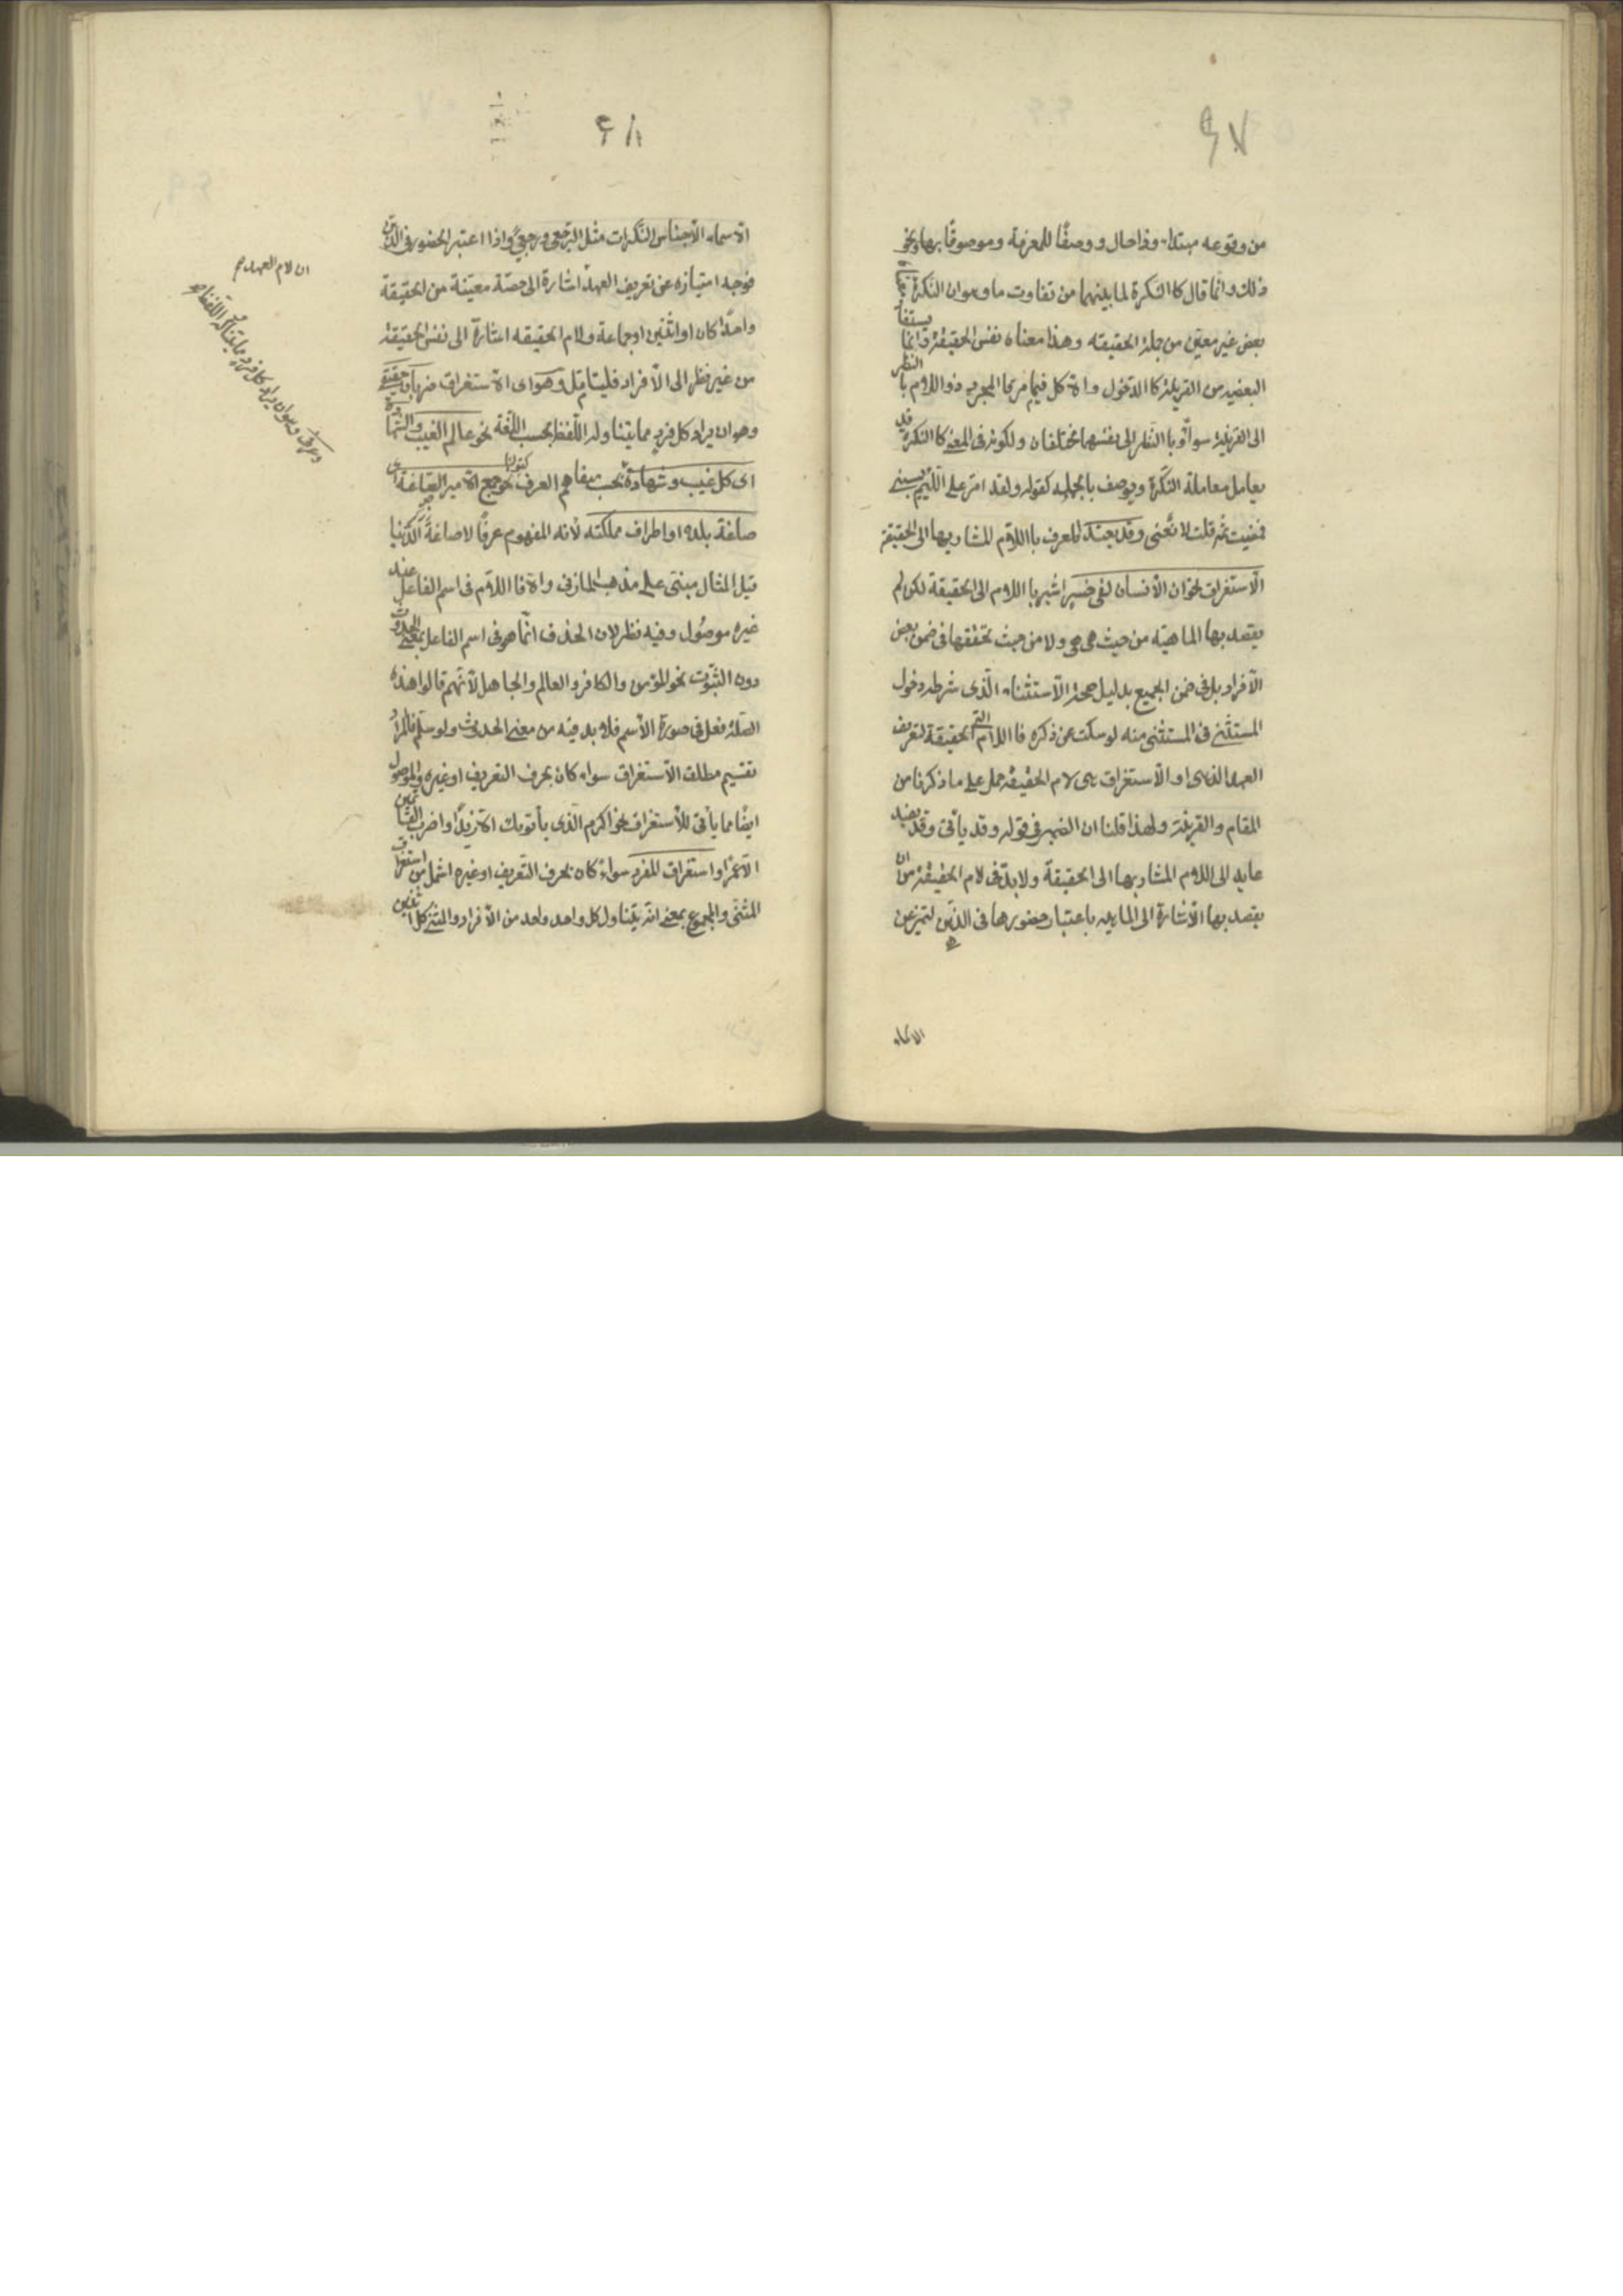 ٤٧
من وقوعه مبتداء وذا حال ووصفا للمعرفة وموصوفا بها ونحو
ذلك وانما قال كالنكرة لما بينهما من تفاوت ما وهو ان النكرة معناه
بعض غير معين من جملة الحقيقة وهذا معناه نفس الحقيقة وانما يستفاد
البعضية من القرينة كا الدخول والاكل فيما مر فا المجرد وذو اللام با النظر
الى القرينة سواء وبا النظر الى انفسهما مختلفان ولكونه فى المعنى كا النكرة قد
يعامل معاملة النكرة ويوصف بالجملة كقوله ولقد امر على اللئيم يسبنى
فمضيت ثمه قلت لا تعنى وقد يفيد المعرف با اللام المشار بها الى الحقيقة
الاستغراق نحو ان الانسان لفى خسر اشير با اللام الى الحقيقة لكن لم
يقصد بها الماهية من حيث هى هى ولا من حيث تحققها فى ضمن بعض
الافراد بل فى ضمن الجميع بدليل صحة الاستثناء الذى شرطه دخول
المستثنى فى المستثنى منه لو سكت عن ذكره فا اللام التى لتعريف
العهد الذهنى او الاستغراق هى لام الحقيقة حمل على ما ذكرنا من
المقام والقرينة ولهذا قلنا ان الضمير فى قوله وقد ياتى وقد يفيد
عايد الى اللام المشار بها الى الحقيقة ولا بد فى لام الحقيقة من ان
يقصد بها الاشارة الى الماهية باعتبار حضورها فى الذهن ليتميز عن
الاسماء
٤٨
الاسماء الاجناس النكرات مثل الرجعى ورجعى واذا اعتبر الحضور فى الذهن
فوجه امتيازه عن تعريف العهد اشارة الى حصة معينة من الحقيقة
واحدا كان او اثنين او جماعة ولام الحقيقة اشارة الى نفس الحقيقة
من غير نظر الى الافراد فليتامل وهو اى الاستغراق ضربان حقيقى
وهو ان يراد كل فرد مما يتناوله اللفظ بحسب اللغة نحو عالم الغيب والشهادة
اى كل غيب وشهادة بحسب متفاهم العرف نحو جمع الامير الصاغة اى
صاغة بلده او اطراف مملكته لانه المفهوم عرفا لا صاغة الدنيا
قيل المثال مبنى على مذهب المازنى والا فا اللام فى اسم الفاعل عند
غيره موصول وفيه نظر لان الخلاف انما هو فى اسم الفاعل بمعنى الحدوث
دون الثبوت نحو المؤمن والكافر والعالم والجاهل لانهم قالوا هذه
الصلة فعل فى صورة الاسم فلا بد فيه من معنى الحدوث ولو سلم فالمراد
تقسيم مطلق الاستغراق سواء كان بحرف التعريف او غيره والموصول
ايضا مما يأتى للاستغراق نحو اكرم الذى يأتونك الا زيدا واضرب القائمين
الا عمرا واستغراق المفرد سواء كان بحرف التعريف او غيره اشمل من استغراق
المثنى والمجموع بمعنى انه يتناول كل واحد واحد من الافراد والمثنى كل اثنين
ان لام العهد صح
وعرفى وهو ان يراد كل فرد مما يتناوله اللفظ صح